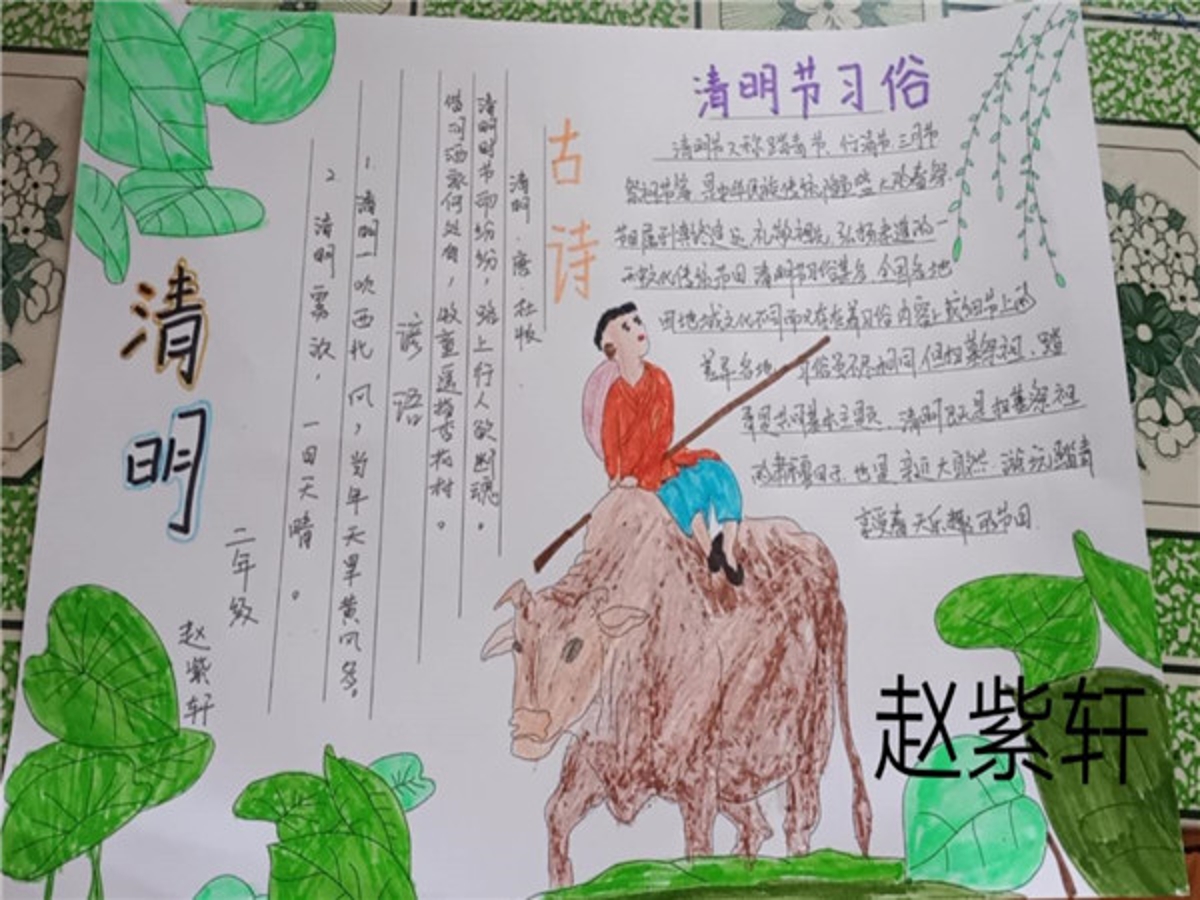 清明节习俗
清明节又称踏青节、行清节、三月节
祭祖节等,是中华民族传统 大的春祭
节日属于慎终追远、礼敬祖先、弘扬孝道的一
文化传统节日 清明节习俗 全国各地
因地域文化不同而又存在着习俗内容上或细节上的
差异各地 习俗虽不尽相同但扫墓祭祖、踏
青是共同基本主题、清明既是扫墓祭祖
的 日子,也是亲近大自然、游玩踏青
享受春天乐趣的节日
古诗
清明·唐·杜牧
清明时节雨纷纷,路上行人欲断魂。
借问酒家何处有,牧童遥指杏花村。
谚语
1、清明一吹西北风,当年天旱黄风多。
2、清明雾浓,一日天晴。
清明
二年级
赵紫轩
赵紫轩